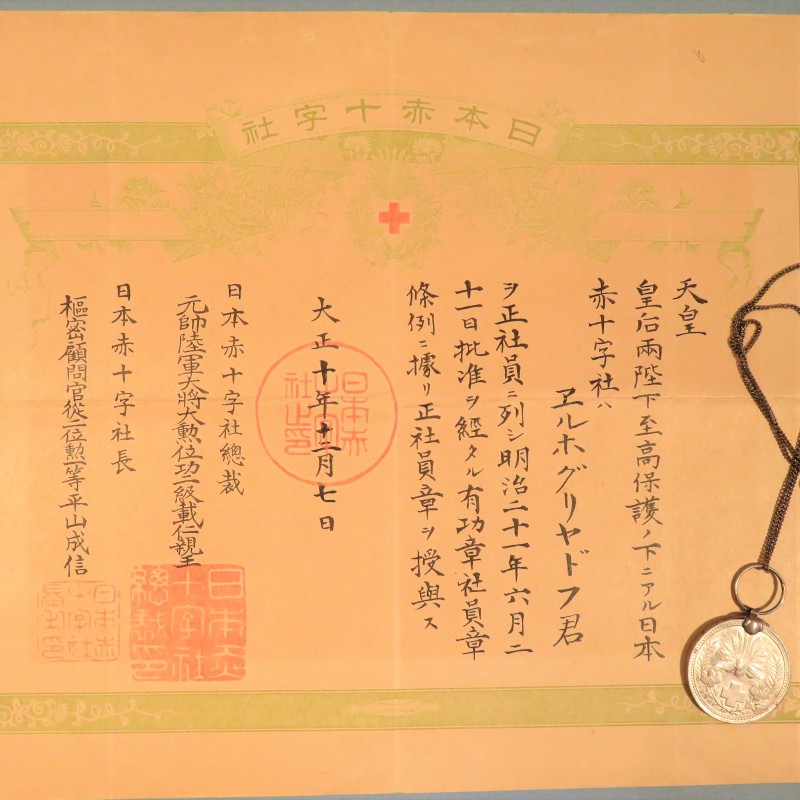 日本赤十字社
天皇
皇后兩陛下至高保護ノ下ニアル日本
赤十字社ハ
ヱルホグリヤドフ君
ヲ正社員ニ列シ明治二十一年六月二
十一日批准ヲ經タル有功章社員章
條例ニ據リ正社員章ヲ授與ス
大正十年十二月七日
日本赤十字社總裁
元帥陸軍大將大勲位功二級載仁親王
日本赤十字社長
樞密顧問官從二位勲一等平山成信
日本赤十字社總裁印
日本赤十字社長之印